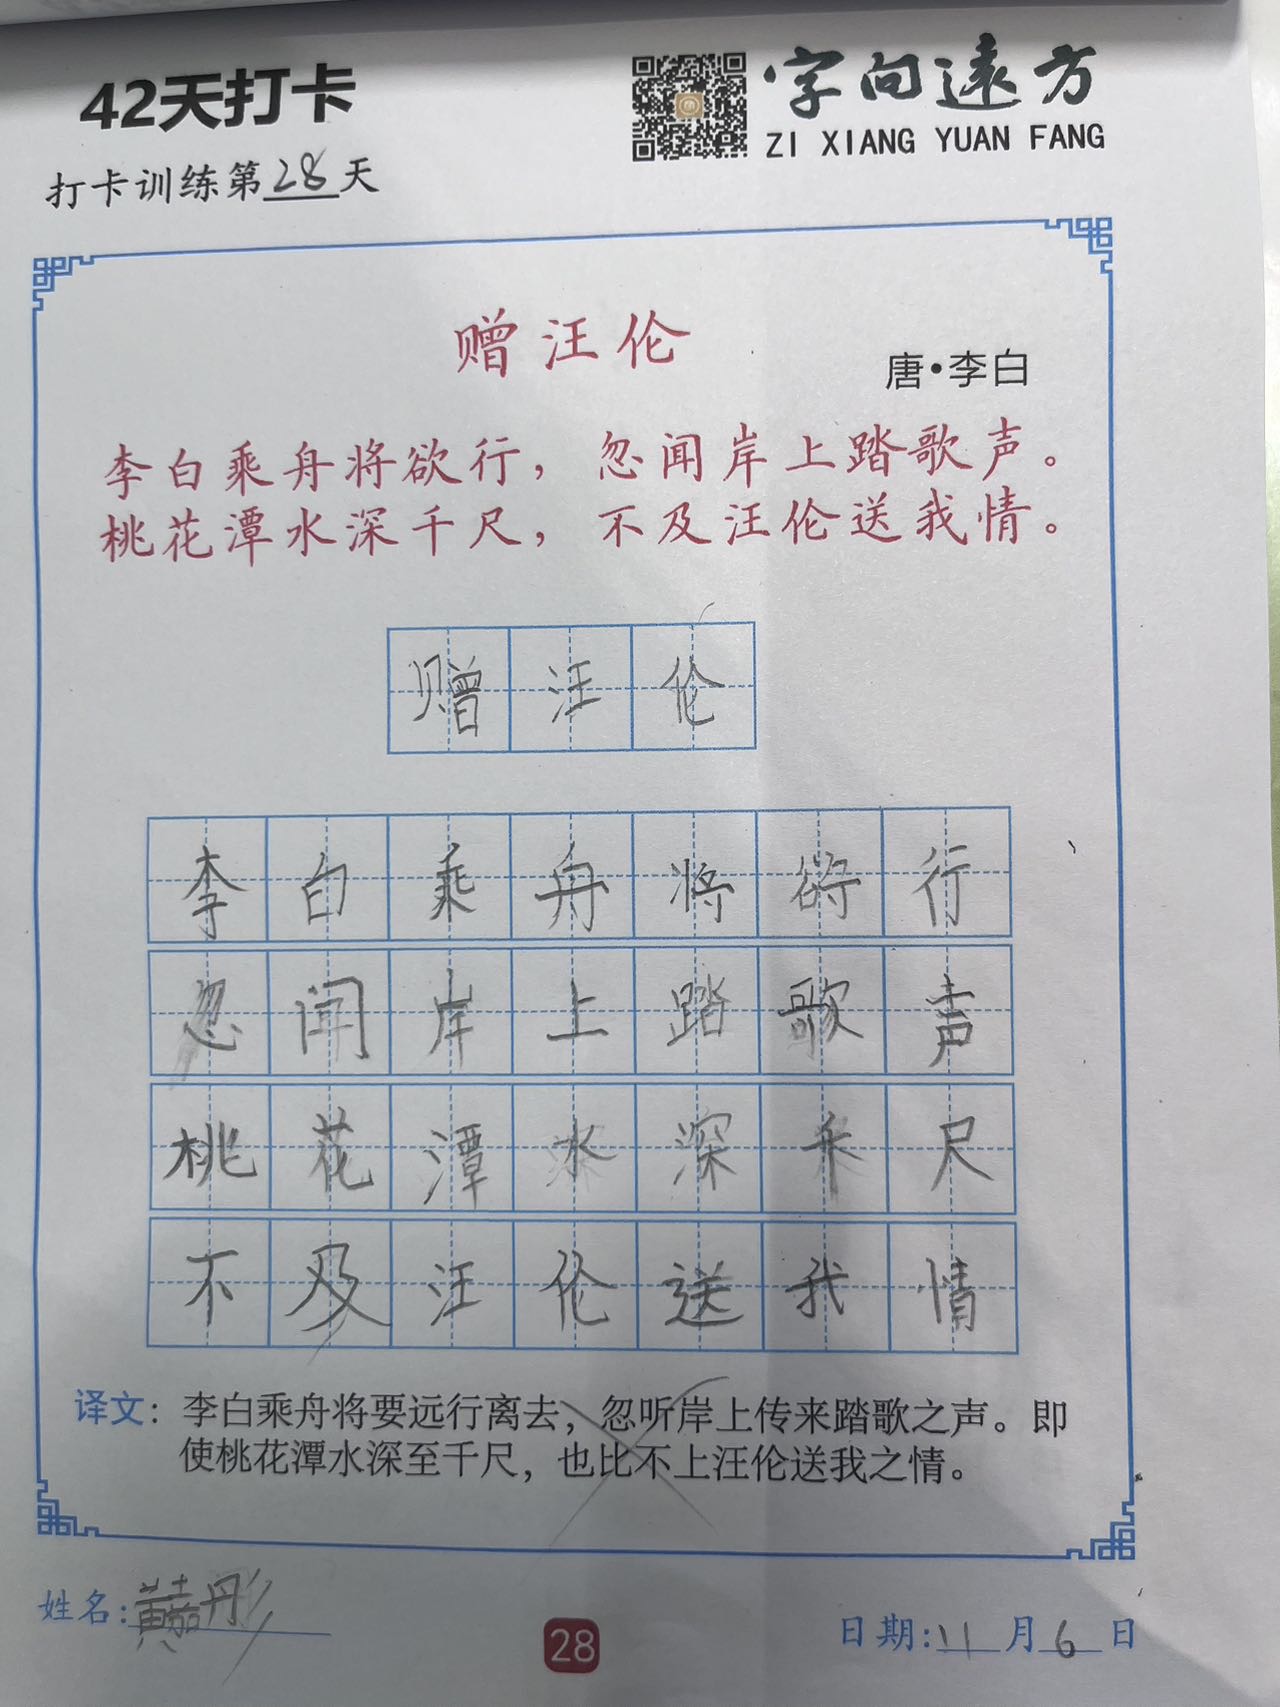 42天打卡
字向遠方
ZI XIANG YUAN FANG
打卡训练第28天
赠汪伦
唐·李白
李白乘舟将欲行，忽闻岸上踏歌声。
桃花潭水深千尺，不及汪伦送我情。
赠汪伦
李白乘舟将欲行
忽闻岸上踏歌声
桃花潭水深千尺
不及汪伦送我情
译文：李白乘舟将要远行离去，忽听岸上传来踏歌之声。即
使桃花潭水深至千尺，也比不上汪伦送我之情。
姓名:黄嘉彤
28
日期:11月6日